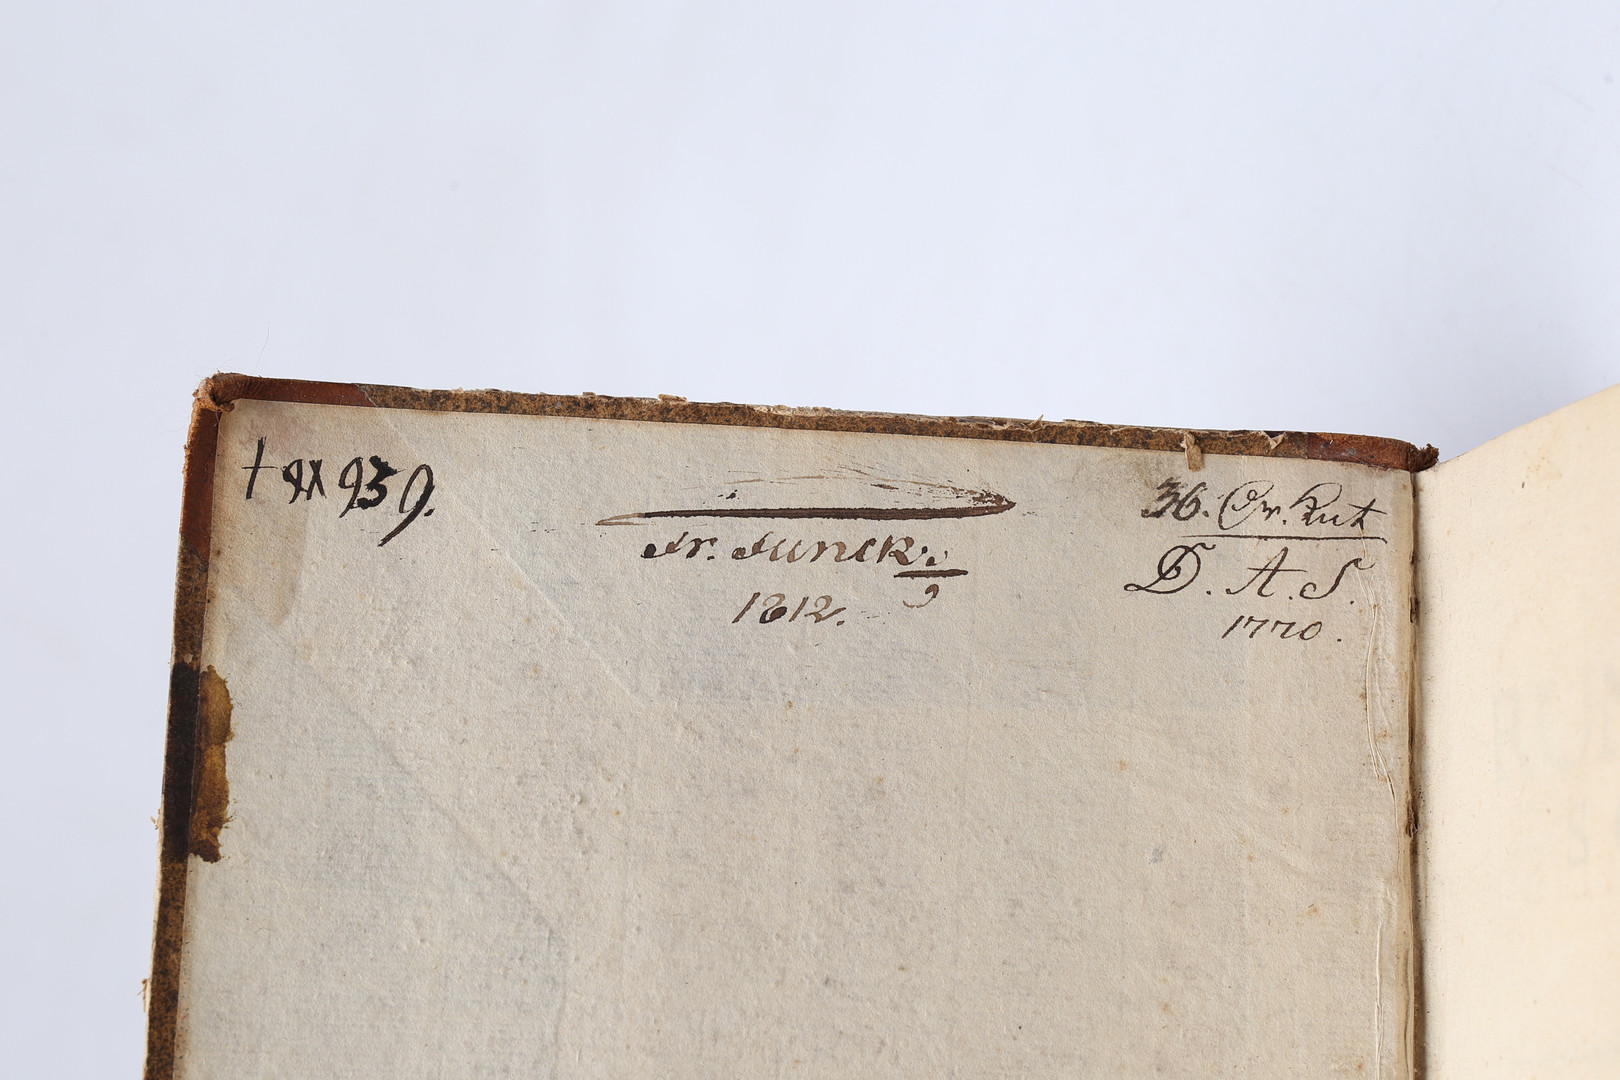 939.
Fr. Funck.
1812.
36. Or. Kut
D. A. S.
1770.